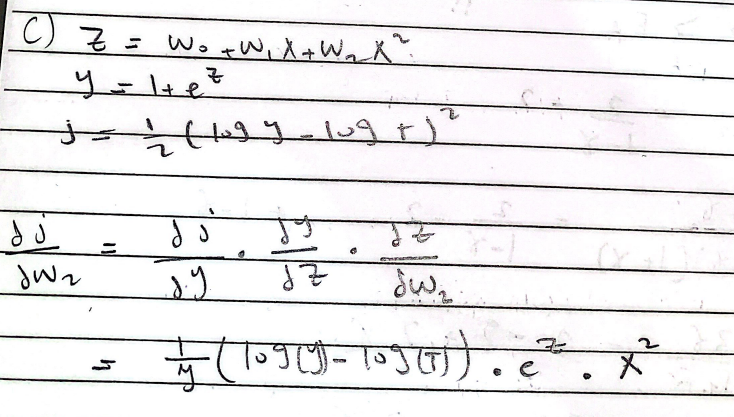 C) z = w₀ + w₁x + w₂x²
y = 1 + e^z
j = 1/2 (log y - log t)²
∂j/∂w₂ = ∂j/∂y . ∂y/∂z . ∂z/∂w₂
= 1/y (log(y) - log(T)) . e^z . x²